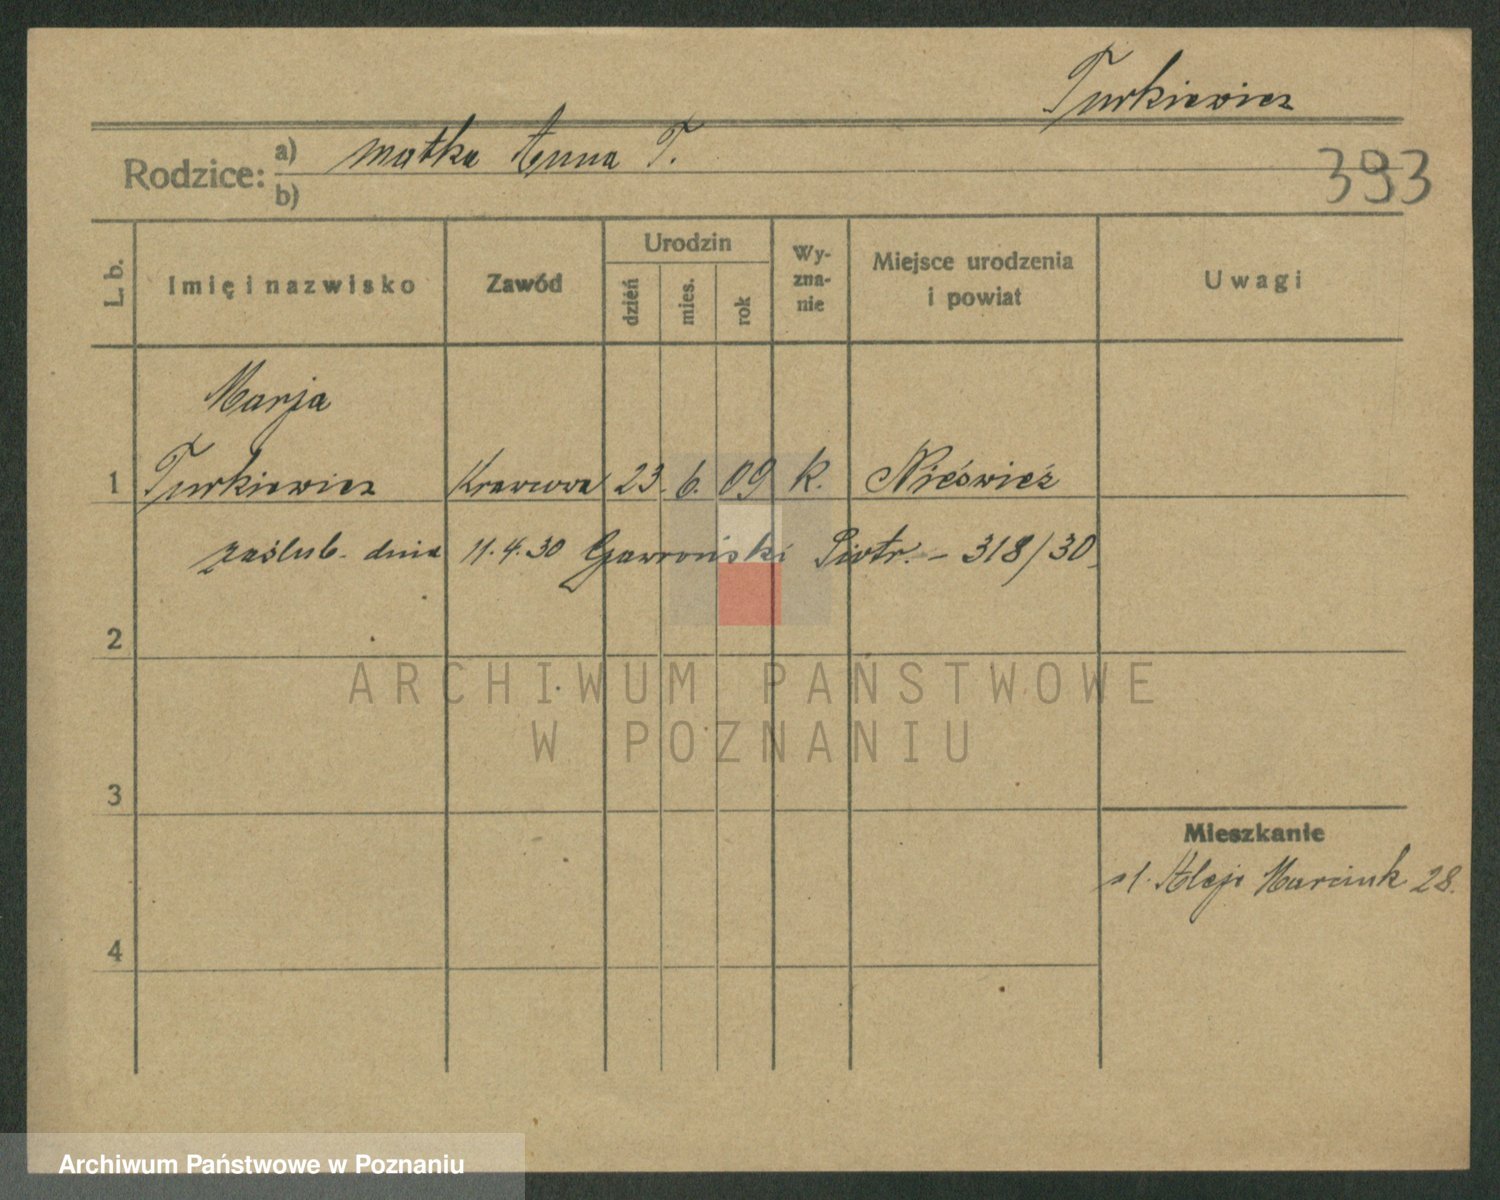 Turkiewicz
Rodzice: a) matka Anna T.
b)
393
L. b.
Imię i nazwisko
Zawód
Urodzin
dzień
mies.
rok
Wy-
zna-
nie
Miejsce urodzenia
i powiat
Uwagi
Marja
1 Turkiewicz Krawcowa 23. 6. 09 k. Nieśwież
zaślub. dnia 11.4.30 Gawroński Piotr. – 318/30
2
3
4
Mieszkanie
Aleje Marcink 28.
ARCHIWUM PAŃSTWOWE
W POZNANIU
Archiwum Państwowe w Poznaniu